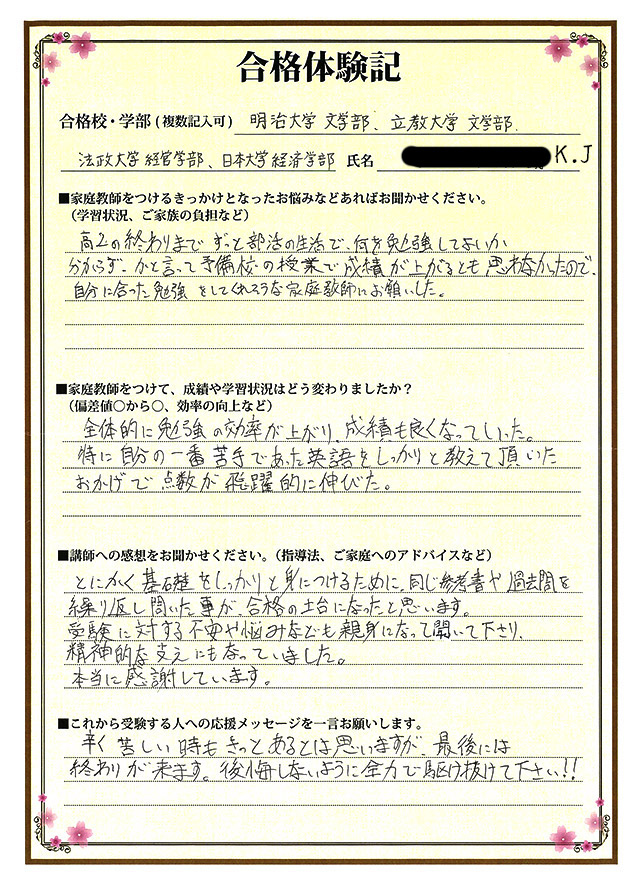 合格体験記
合格校・学部(複数記入可) 明治大学 文学部、立教大学 文学部.
法政大学 経営学部、日本大学 経済学部 氏名 K.J
■家庭教師をつけるきっかけとなったお悩みなどあればお聞かせください。
(学習状況、ご家族の負担など)
高2の終わりまで ずっと部活の生活で、何を勉強してよいか
分からず、かと言って予備校の授業で成績が上がるとも思わなかったので、
自分に合った勉強をしてくれそうな家庭教師にお願いした。
■家庭教師をつけて、成績や学習状況はどう変わりましたか?
(偏差値○から○、効率の向上など)
全体的に勉強の効率が上がり、成績も良くなっていった。
特に自分の一番苦手であった英語をしっかりと教えて頂いた
おかげで点数が飛躍的に伸びた。
■講師への感想をお聞かせください。(指導法、ご家庭へのアドバイスなど)
とにかく基礎をしっかりと身につけるために、同じ参考書や過去問を
繰り返し問いた事が、合格の土台になったと思います。
受験に対する不安や悩みなども親身になって聞いて下さり、
精神的な支えにもなっていました。
本当に感謝しています。
■これから受験する人への応援メッセージを一言お願いします。
辛く苦しい時もきっとあるとは思いますが、最後には
終わりが来ます。後悔しないように全力で駆け抜けて下さい!!